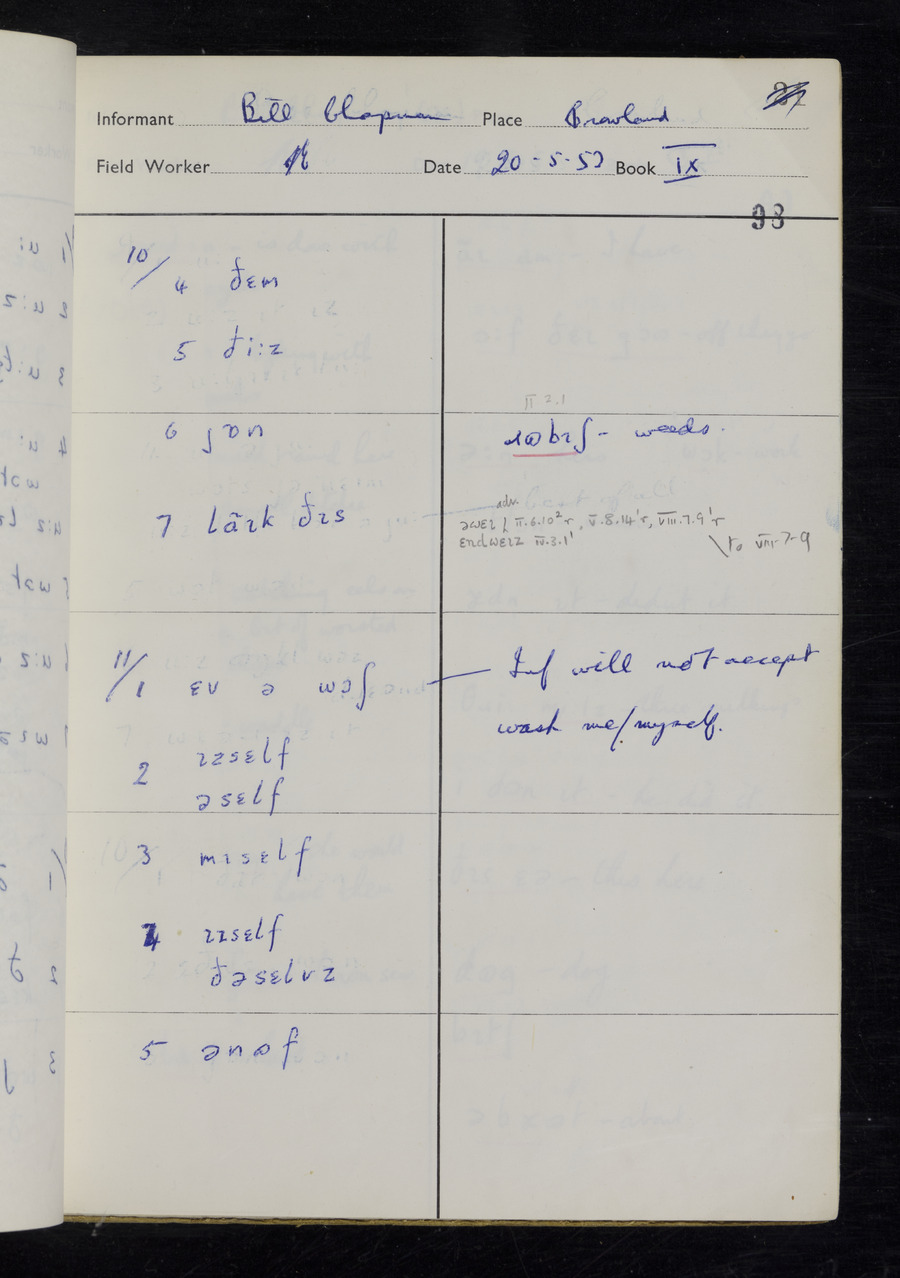 Informant Bill Chapman Place Crowland
Field Worker Date 20-5-53 Book IX
93
10/4 ðɛm
5 ði:z
6 jɒn
ɪɪ 2.1
ɹɷbɪʃ - weeds.
7 lɑ̄ɪk ðɪs
adv.
əwɛɪ / II.6.10²r, V.8.14'r, VIII.7.9'r
ɛndwɛɪz IV.3.1'
to VIII-7-9
11/1 ɛv ə wɔʃ
Inf will not accept
wash me/myself.
2 ɪzsɛlf
əsɛlf
3 mɪsɛlf
4 ɪzsɛlf
ðəsɛlvz
5 ənɷf